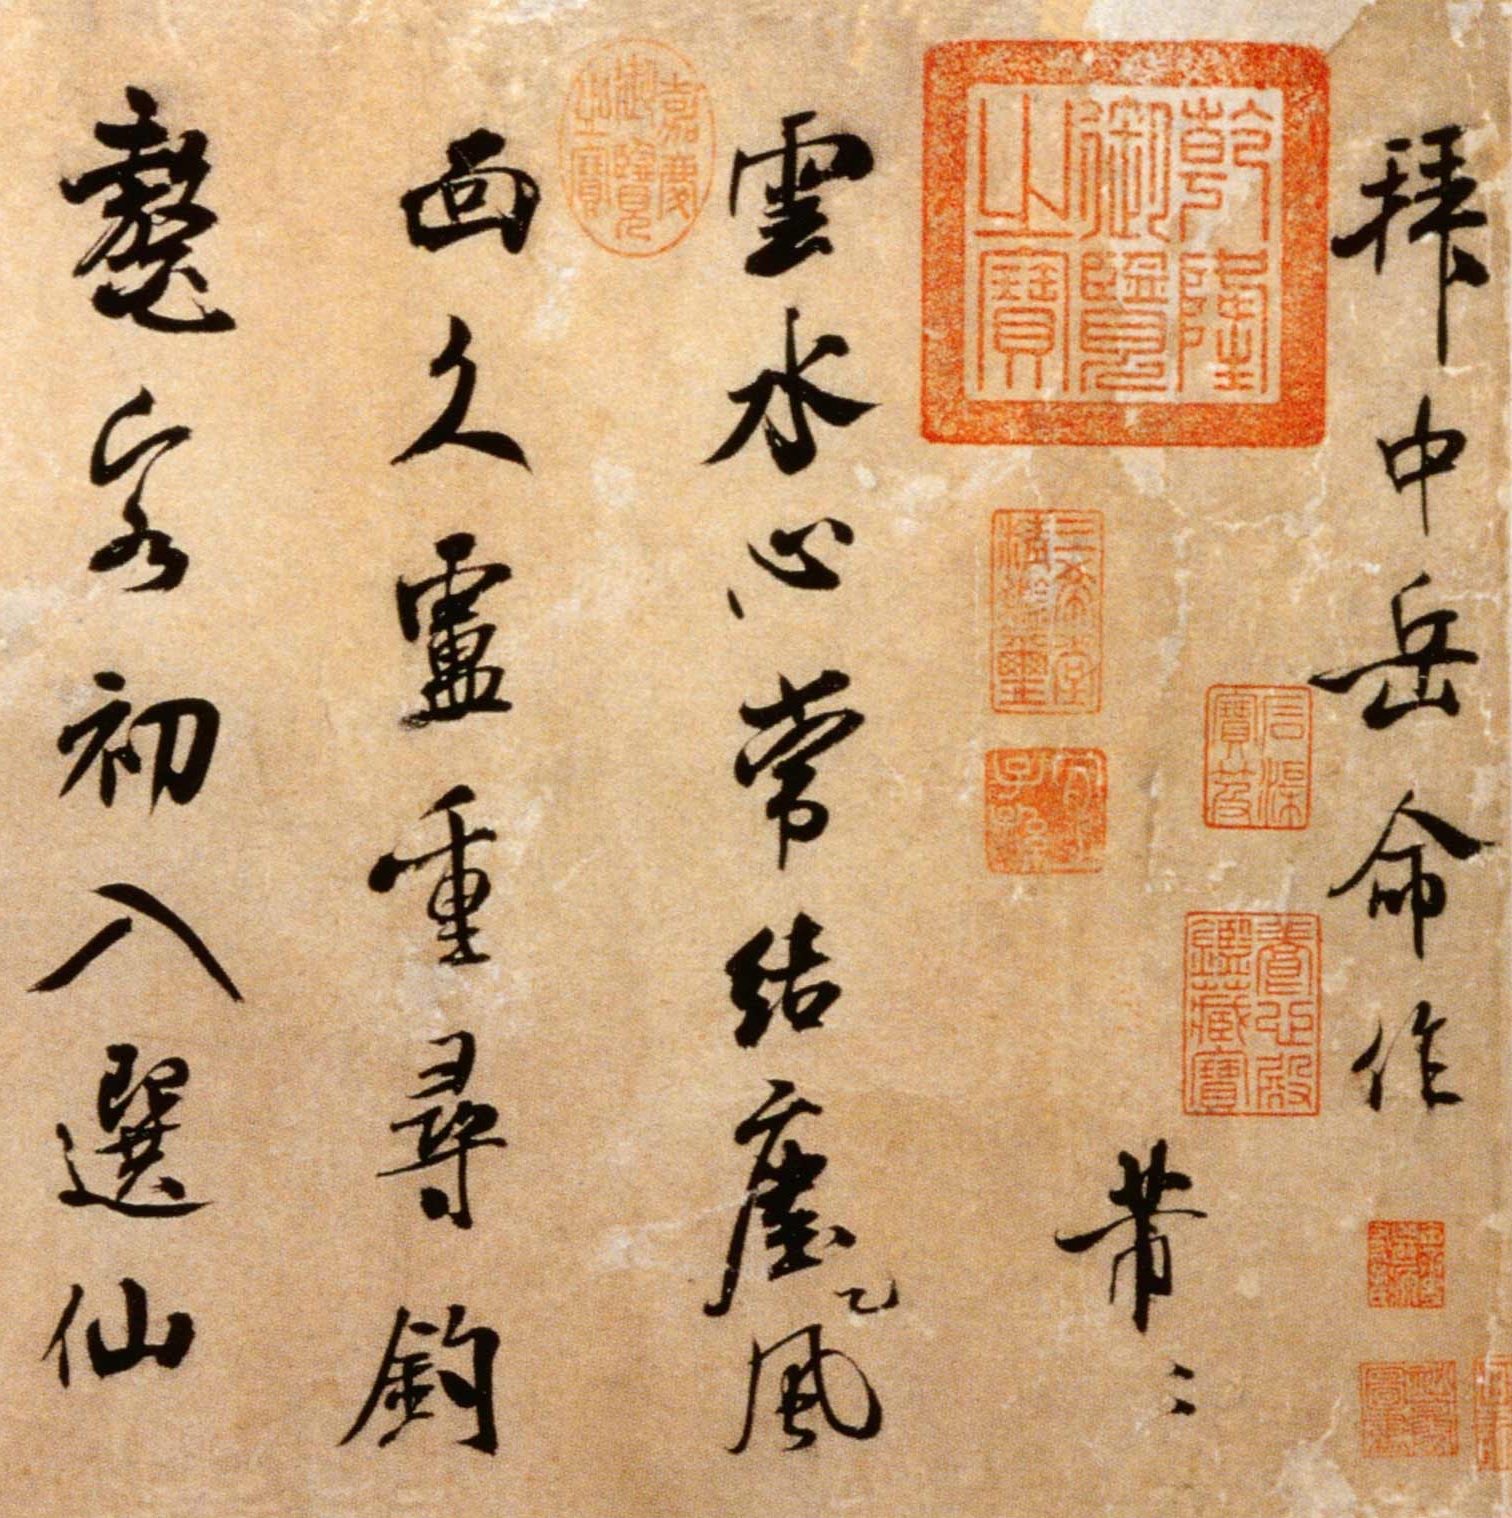 拜中岳命作
芾
雲水心常結塵風
面久盧重尋釣
鼇客初入選仙
乾隆御覽之寶
石渠寶笈
養心殿鑑藏寶
三希堂精鑑璽
宜子孫
嘉慶御覽之寶